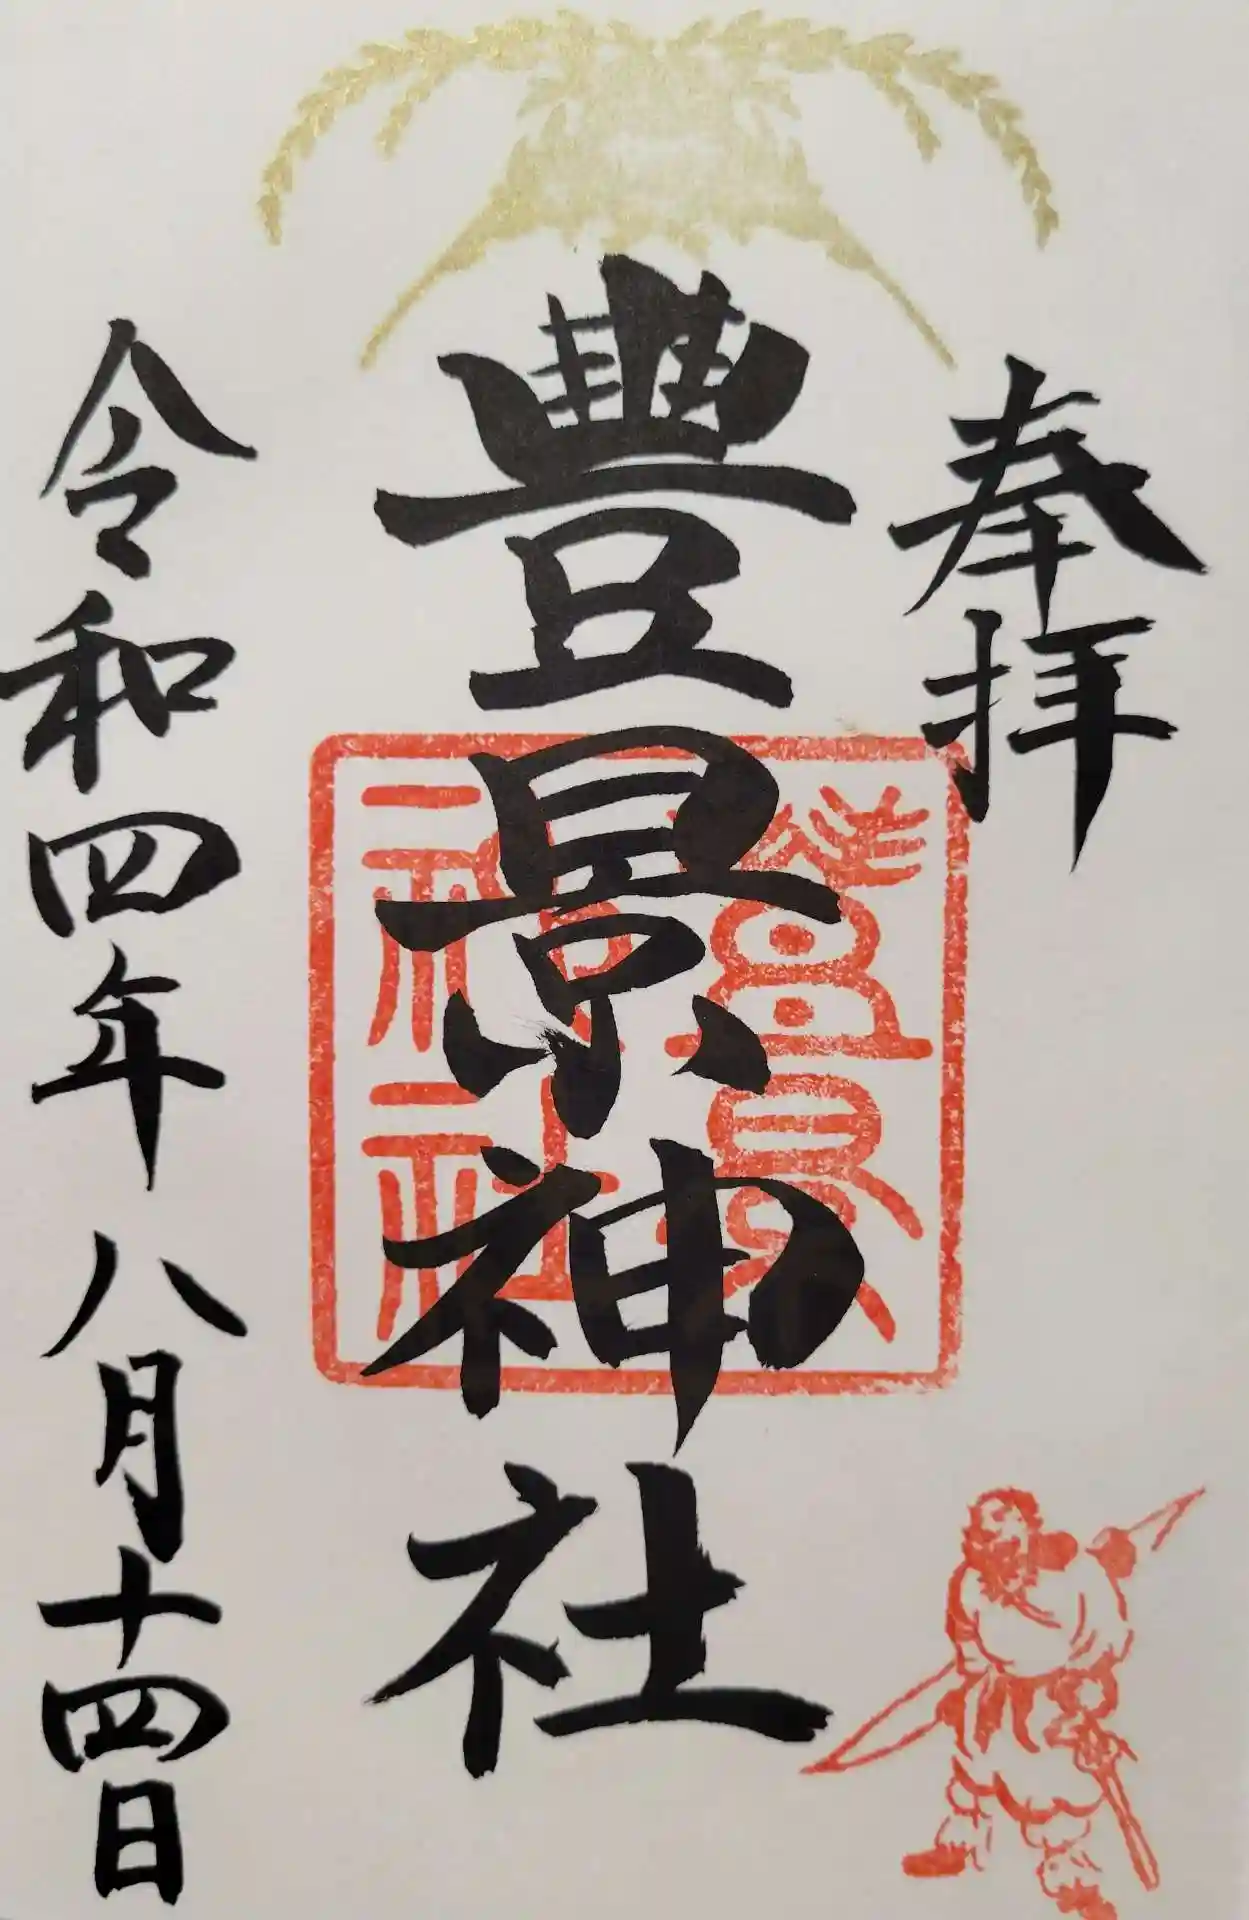 奉拝
豊景神社
豊景
神社
令和四年八月十四日